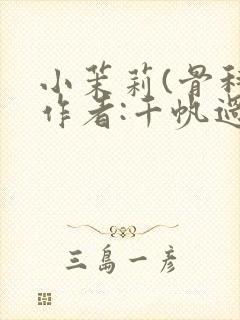 小茉莉(骨科
作者:千帆過
三島一彦